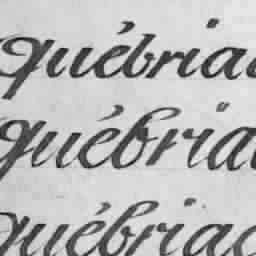 québriac
québriac
québriac